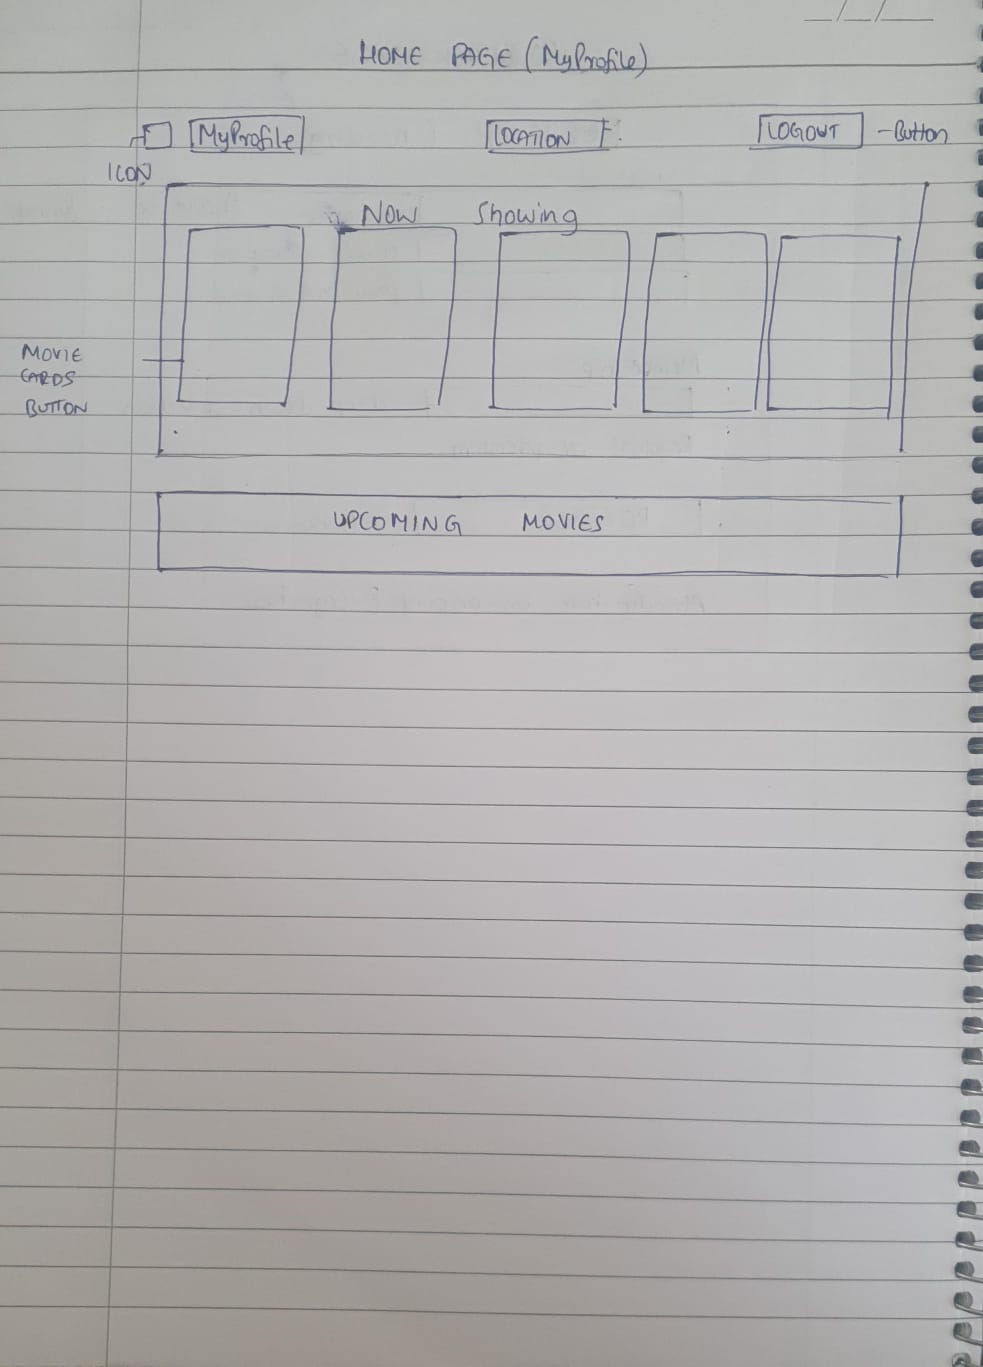 HOME PAGE (MyProfile)
MyProfile LOCATION LOGOUT - Button
ICON
Now Showing
MOVIE
CARDS
BUTTON
UPCOMING MOVIES